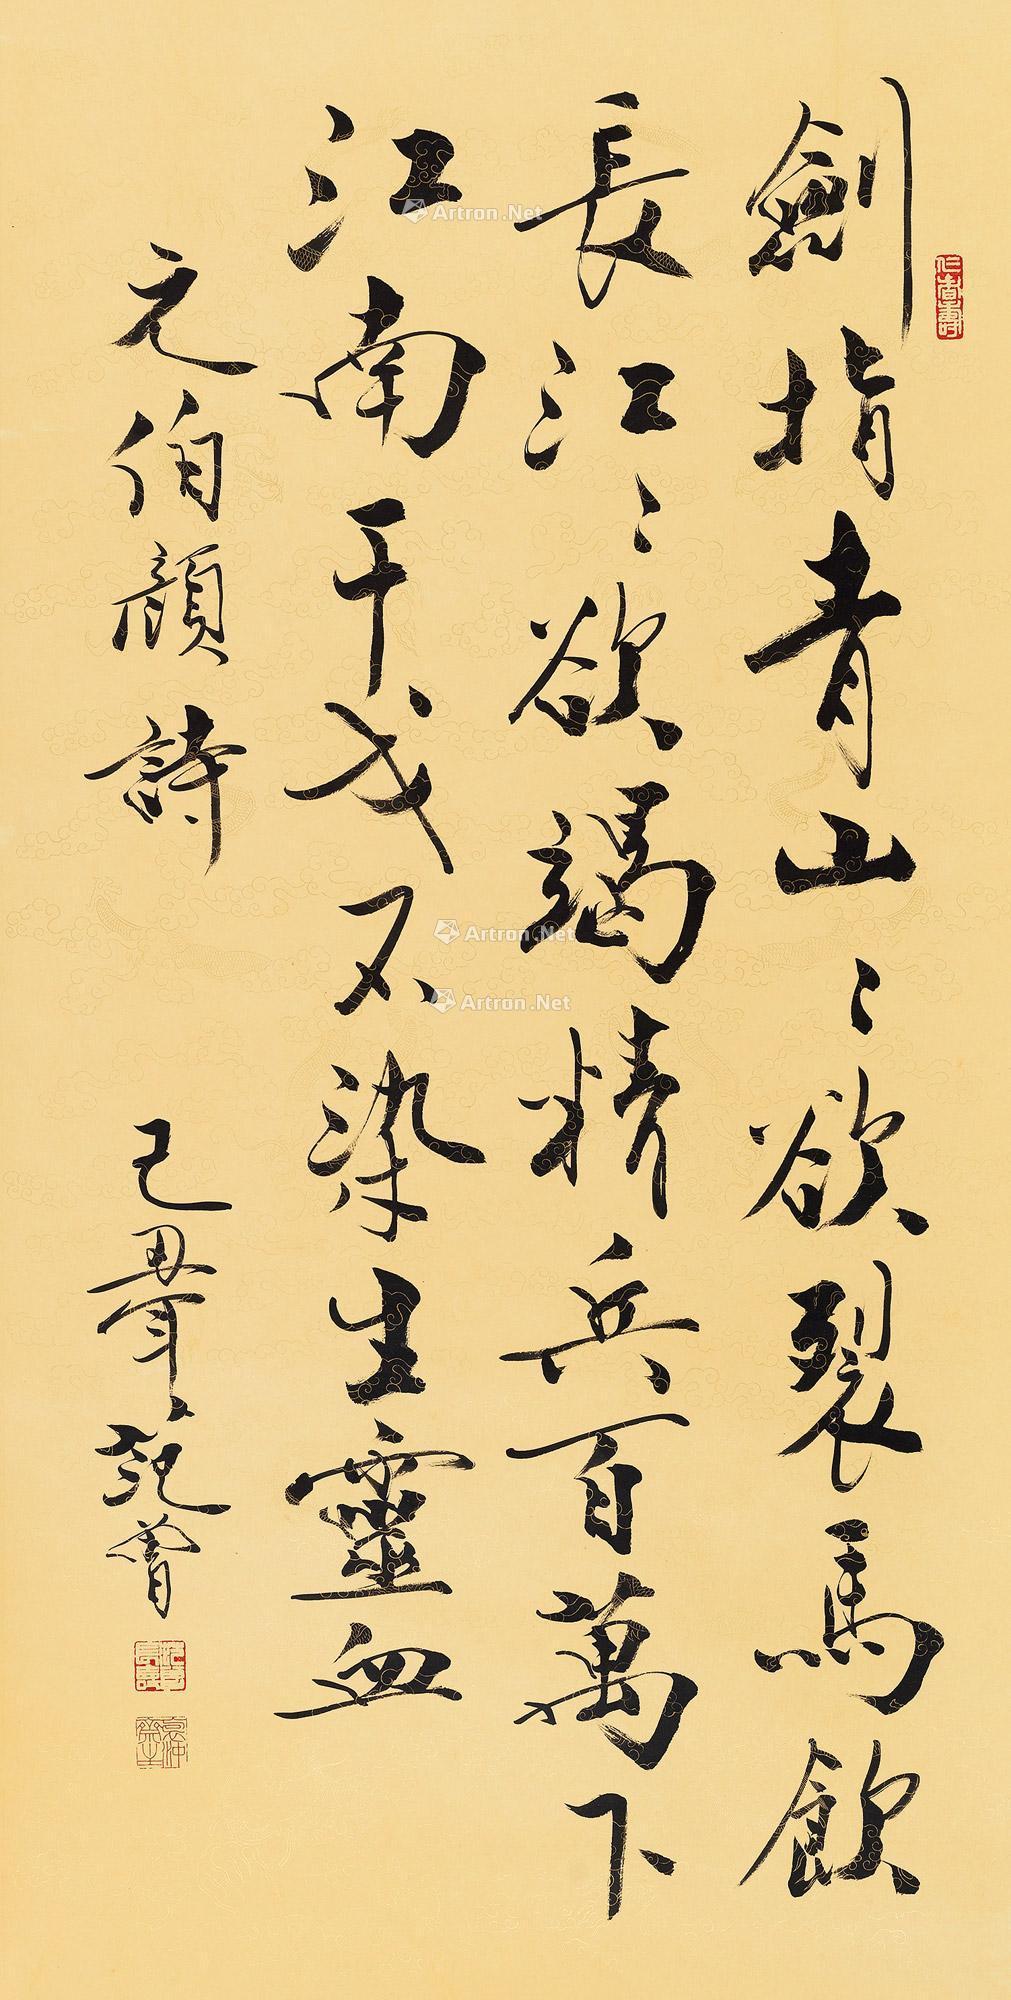 劍指青山〻欲裂馬飲
長江〻欲竭精兵百萬下
江南干戈不染生靈血
元伯顏詩
己丑年范曾
仁者壽
Artron.Net
Artron.Net
Artron.Net